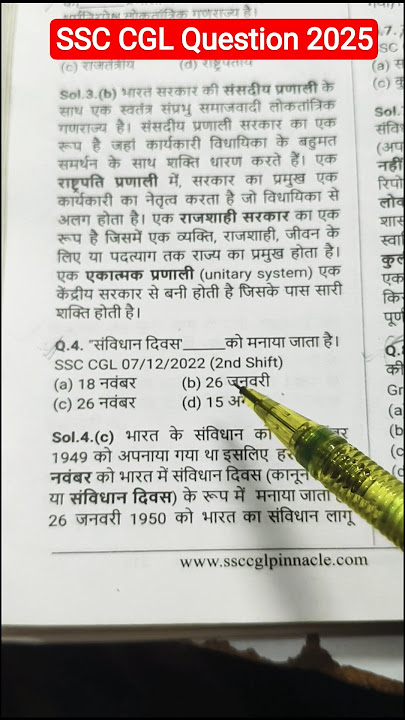 SSC CGL Question 2025
(c) राजतंत्रीय (d) राष्ट्रपतीय
Sol.3.(b) भारत सरकार की संसदीय प्रणाली के
साथ एक स्वतंत्र संप्रभु समाजवादी लोकतांत्रिक
गणराज्य है। संसदीय प्रणाली सरकार का एक
रूप है जहां कार्यकारी विधायिका के बहुमत
समर्थन के साथ शक्ति धारण करते हैं। एक
राष्ट्रपति प्रणाली में, सरकार का प्रमुख एक
कार्यकारी का नेतृत्व करता है जो विधायिका से
अलग होता है। एक राजशाही सरकार का एक
रूप है जिसमें एक व्यक्ति, राजशाही, जीवन के
लिए या पदत्याग तक राज्य का प्रमुख होता है।
एक एकात्मक प्रणाली (unitary system) एक
केंद्रीय सरकार से बनी होती है जिसके पास सारी
शक्ति होती है।
Q.4. "संविधान दिवस'_____को मनाया जाता है।
SSC CGL 07/12/2022 (2nd Shift)
(a) 18 नवंबर (b) 26 जनवरी
(c) 26 नवंबर (d) 15
Sol.4.(c) भारत के संविधान को
1949 को अपनाया गया था इसलिए
नवंबर को भारत में संविधान दिवस
या संविधान दिवस) के रूप में मनाया जाता
26 जनवरी 1950 को भारत का संविधान लागू
www.ssccglpinnacle.com